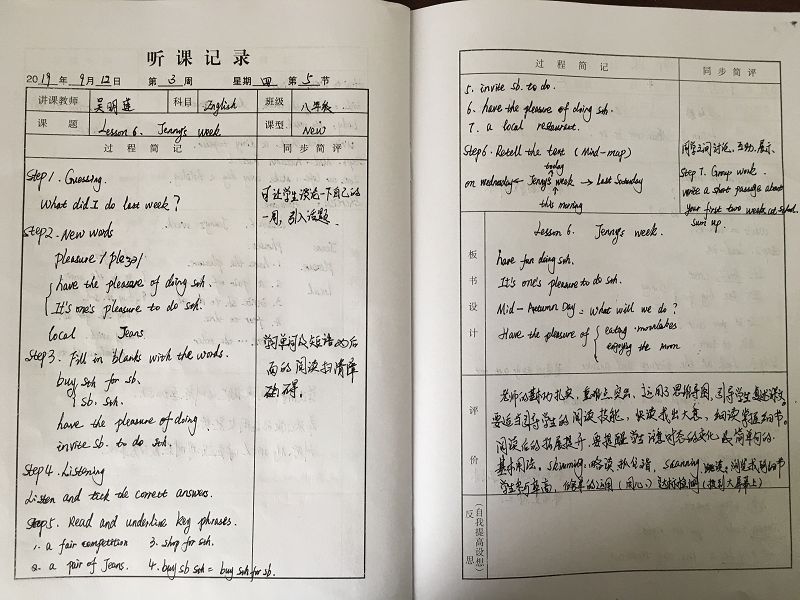 听课记录
2019年 9月12日 第3周 星期四 第5节
讲课教师 吴明莲 科目 English 班级 八年级
课题 Lesson 6. Jenny's week 课型 New
过程简记 同步简评
Step 1. Guessing.
What did I do last week?
可让学生谈论一下自己的
一周,引入话题.
Step2. New words
pleasure /pleʒə/
have the pleasure of doing sth.
It's one's pleasure to do sth.
local Jeans.
学习单词及短语为后
面的阅读扫清障
碍.
Step 3. Fill in blanks with the words.
buy sth for sb.
sb. sth.
have the pleasure of doing
invite sb. to do sth.
Step 4. Listening
Listen and tick the correct answers.
Step 5. Read and underline key phrases.
1. a fair competition 3. shop for sth.
2. a pair of Jeans. 4. buy sb sth = buy sth for sb.
过程简记 同步简评
5. invite sb. to do.
6. have the pleasure of doing sth.
7. a local restaurant.
Step 6. Retell the text (Mind-map)
today
on Wednesday ← Jenny's week → last Saturday
this morning
同学之间讨论、互动、展示.
Step 7. Group work.
write a short passage about
your first two weeks at school.
sum up.
板书设计
Lesson 6. Jenny's week.
have fun doing sth.
It's one's pleasure to do sth.
Mid-Autumn Day = What will we do?
Have the pleasure of eating mooncakes
enjoying the moon
评价
老师的基本功扎实,重难点突出、运用了思维导图,引导学生复述课文.
要适当引导学生的阅读技能,快读找出大意,细读掌握细节.
阅读后的拓展提升,要提醒学生注意时态的变化及简单句的
基本用法. skimming: 略读 scanning
学生参与率高, 达标检测 (投到大屏幕上)
反思
(自我提高设想)